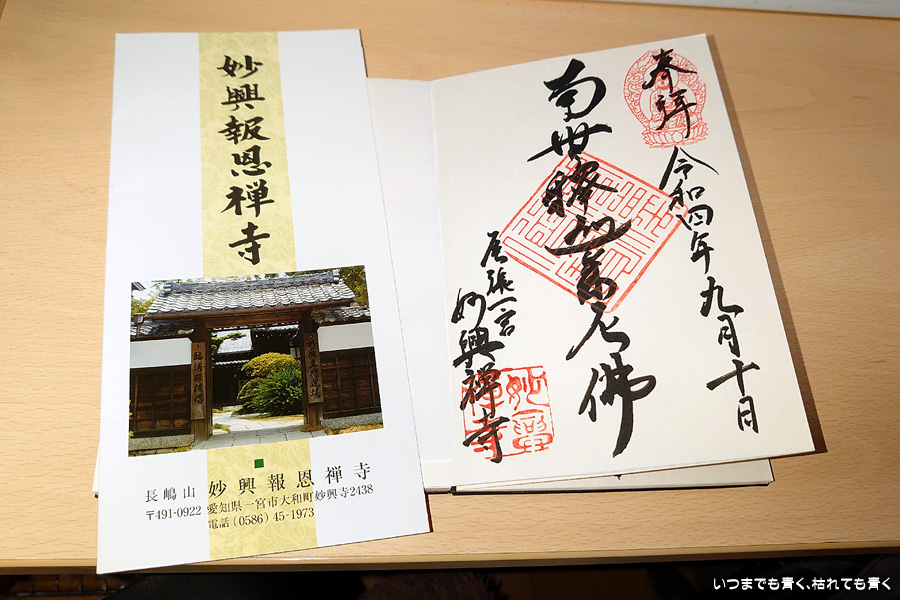 妙興報恩禅寺
長嶋山 妙興報恩禅寺
〒491-0922 愛知県一宮市大和町妙興寺2438
電話 (0586) 45-1973
奉拝
令和四年九月十日
南無釋迦牟尼佛
尾張一宮
妙興禅寺
いつまでも青く、枯れても青く